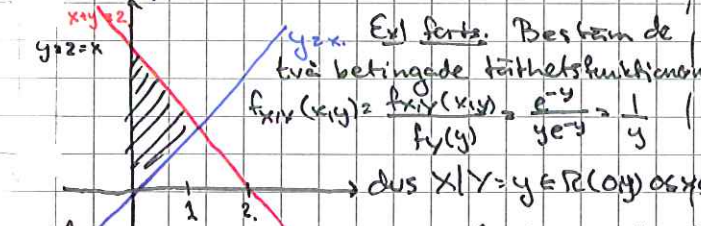 x+y=2
y=2-x
y=x.
Ex) forts. Bestäm de
två betingade täthetsfunktionerna
f_{X|Y}(x,y) = f_{X,Y}(x,y) / f_Y(y) = e^{-y} / ye^{-y} = 1/y
dvs X|Y=y ∈ R(0,y)
1 2.